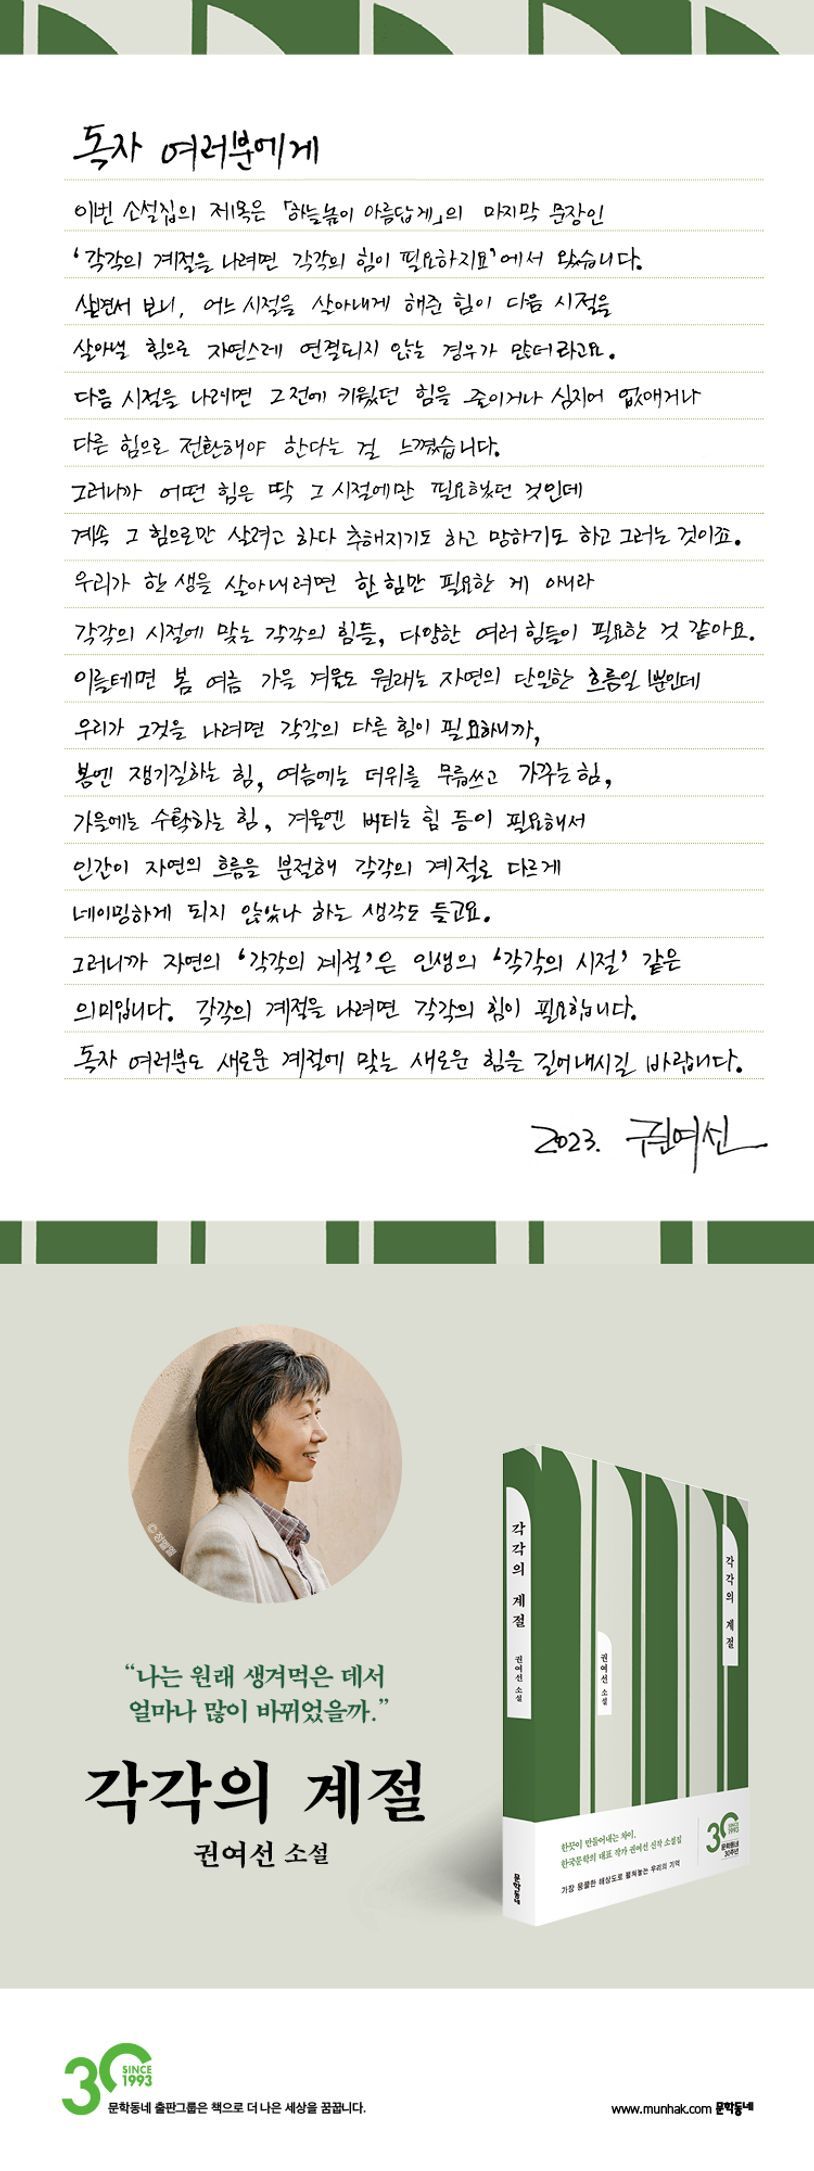 독자 여러분에게
이번 소설집의 제목은 「하늘높이 아름답게」의 마지막 문장인
‘각각의 계절을 나려면 각각의 힘이 필요하지요’에서 왔습니다.
살면서 보니, 어느 시절을 살아내게 해준 힘이 다음 시절을
살아낼 힘으로 자연스레 연결되지 않는 경우가 많더라고요.
다음 시절을 나려면 그전에 키웠던 힘을 줄이거나 심지어 없애거나
다른 힘으로 전환해야 한다는 걸 느꼈습니다.
그러니까 어떤 힘은 딱 그 시절에만 필요했던 것인데
계속 그 힘으로만 살려고 하다 추해지기도 하고 망하기도 하고 그러는 것이죠.
우리가 한 생을 살아내려면 한 힘만 필요한 게 아니라
각각의 시절에 맞는 각각의 힘들, 다양한 여러 힘들이 필요한 것 같아요.
이를테면 봄 여름 가을 겨울도 원래는 자연의 단일한 흐름일 뿐인데
우리가 그것을 나려면 각각의 다른 힘이 필요하니까,
봄엔 쟁기질하는 힘, 여름에는 더위를 무릅쓰고 가꾸는 힘,
가을에는 수확하는 힘, 겨울엔 버티는 힘 등이 필요해서
인간이 자연의 흐름을 분절해 각각의 계절로 다르게
네이밍하게 되지 않았나 하는 생각도 들고요.
그러니까 자연의 ‘각각의 계절’은 인생의 ‘각각의 시절’ 같은
의미입니다. 각각의 계절을 나려면 각각의 힘이 필요합니다.
독자 여러분도 새로운 계절에 맞는 새로운 힘을 길어내시길 바랍니다.
2023. 권여선
©정멜멜
“나는 원래 생겨먹은 데서
얼마나 많이 바뀌었을까.”
각각의 계절
권여선 소설
각각의 계절
권여선 소설
문학동네
각각의 계절
권여선 소설
한끗이 만들어내는 차이.
한국문학의 대표 작가 권여선 신작 소설집
가장 뭉클한 해상도로 펼쳐놓는 우리의 기억
30
SINCE
1993
문학동네
30주년
30
SINCE
1993
문학동네 출판그룹은 책으로 더 나은 세상을 꿈꿉니다.
www.munhak.com 문학동네